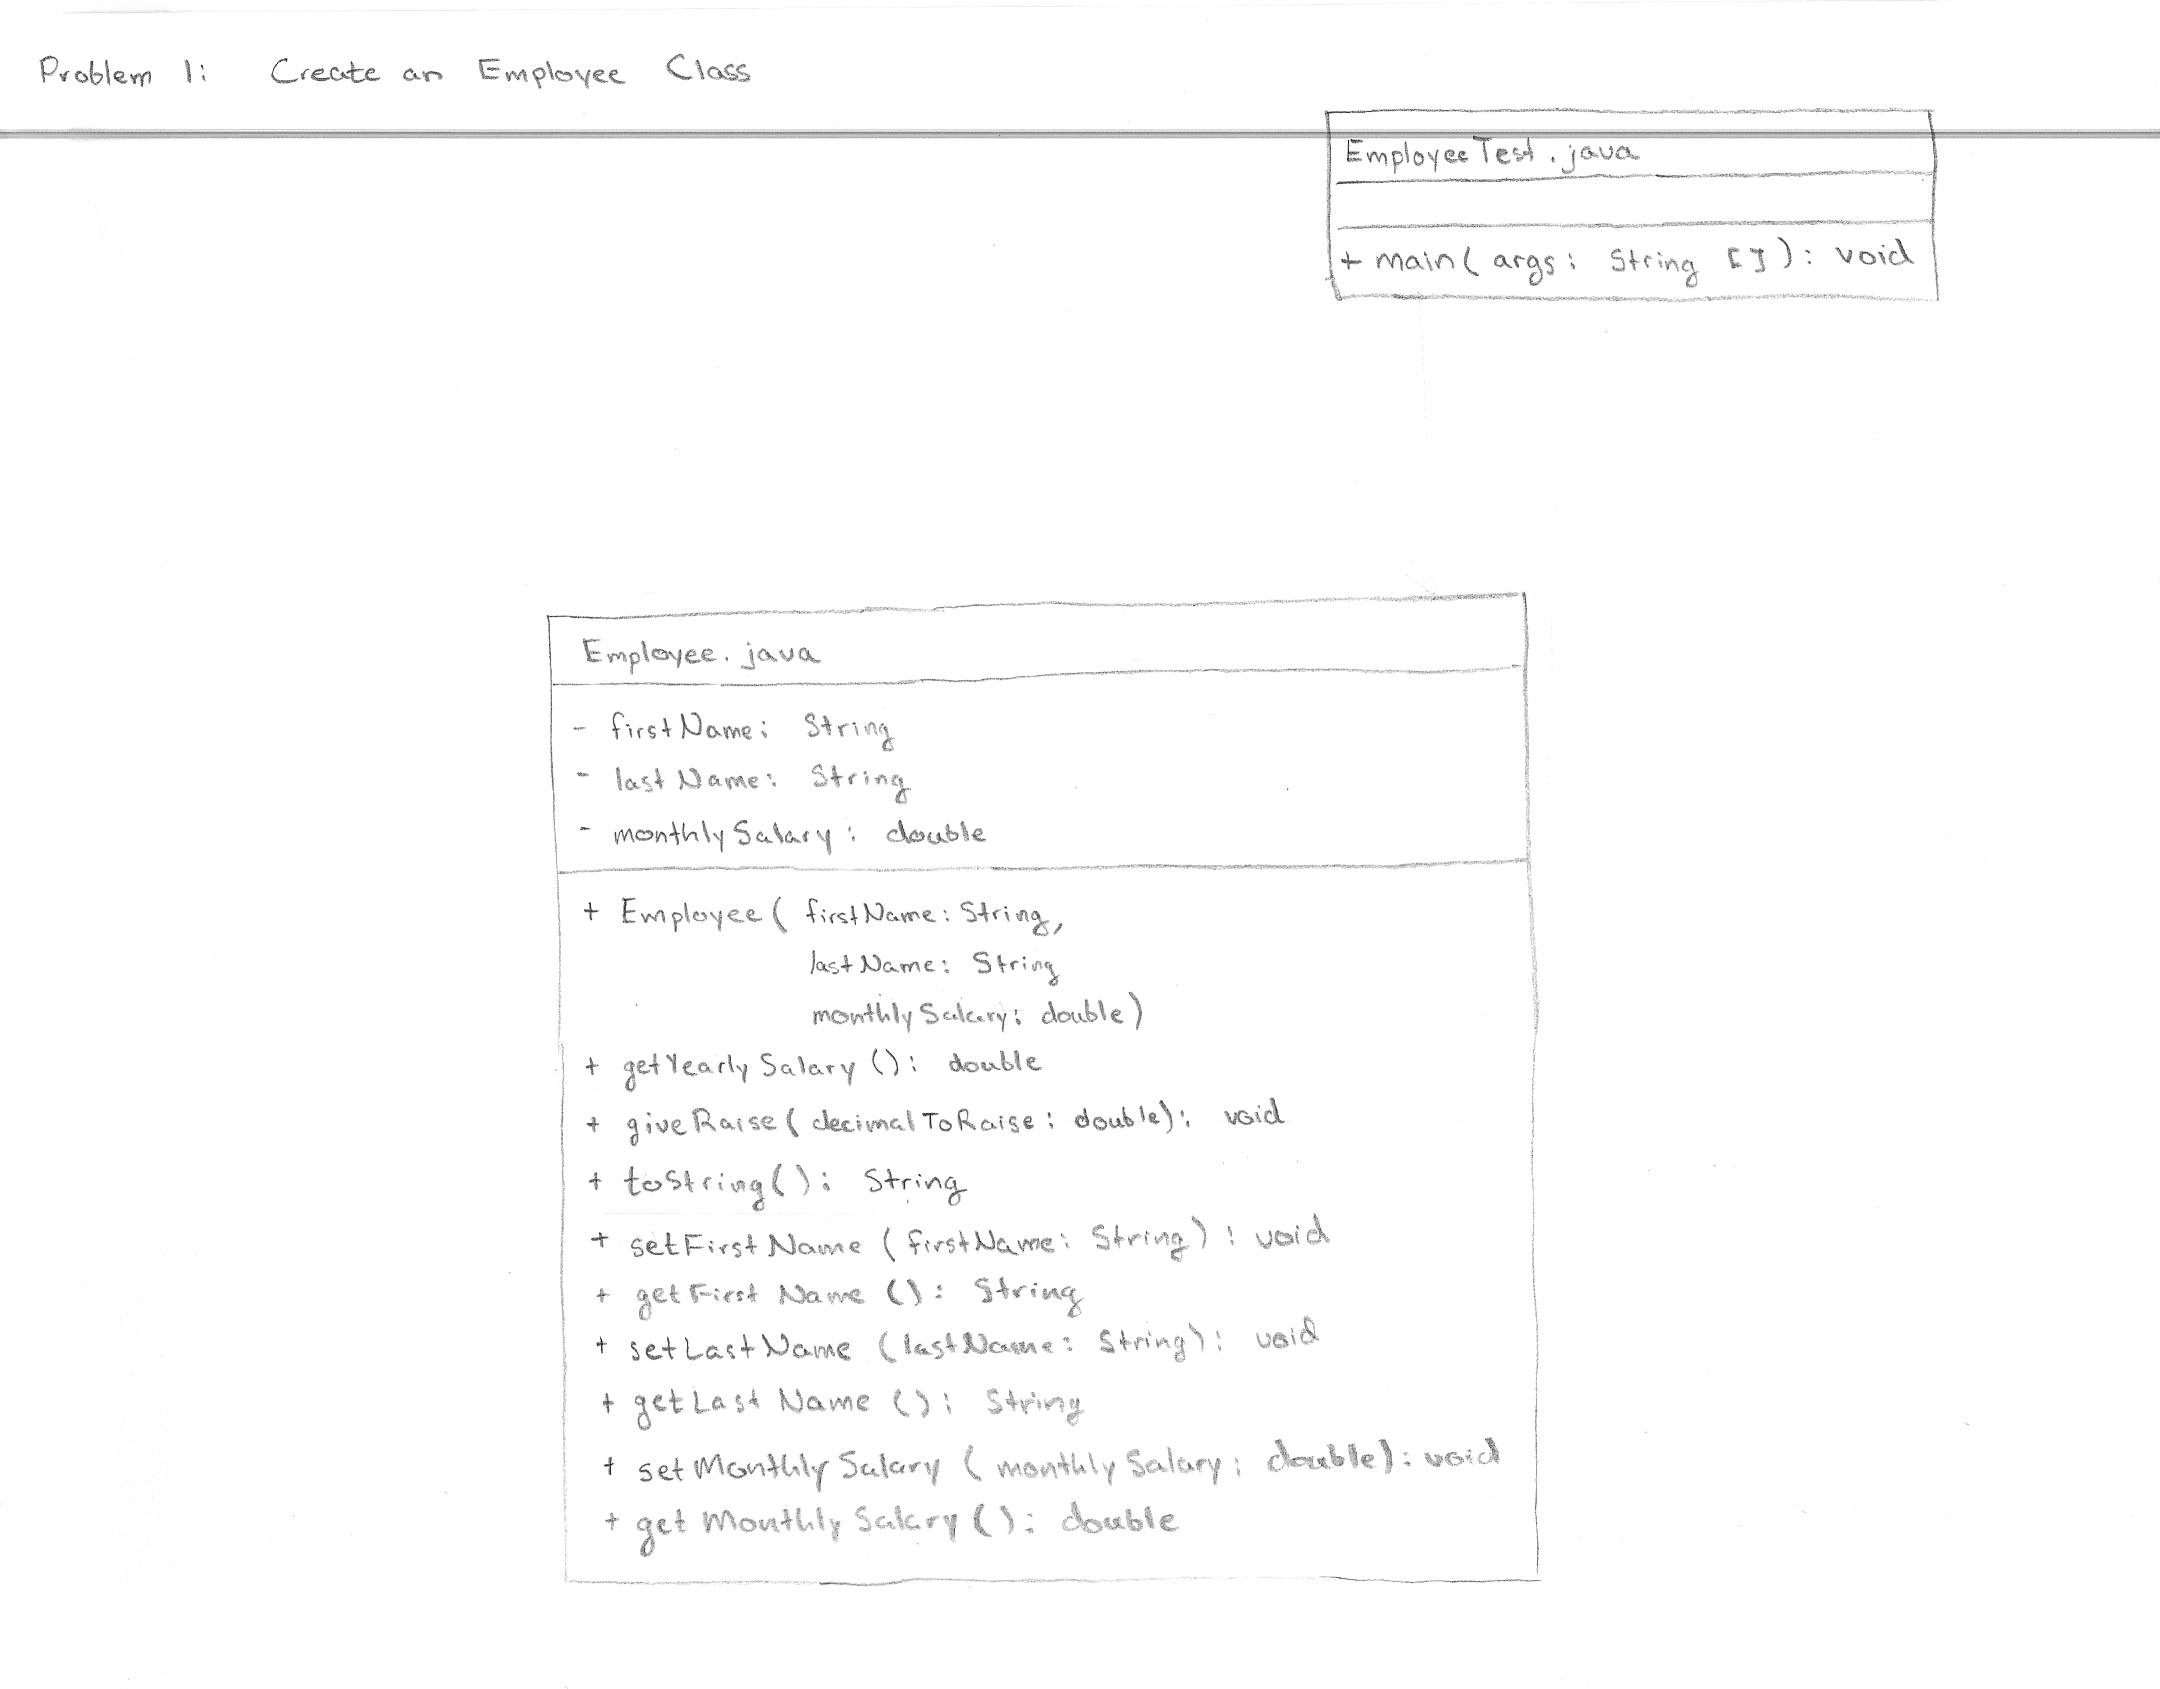 Problem 1: Create an Employee Class
EmployeeTest.java
+ main( args: String [] ): void
Employee.java
- firstName: String
- lastName: String
- monthlySalary: double
+ Employee( firstName: String,
lastName: String
monthlySalary: double)
+ getYearlySalary (): double
+ giveRaise( decimalToRaise: double): void
+ toString(): String
+ setFirstName ( firstName: String) : void
+ getFirstName (): String
+ setLastName (lastName: String): void
+ getLastName (): String
+ setMonthlySalary ( monthlySalary: double): void
+ getMonthlySalary (): double